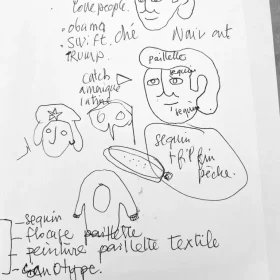 love people.
• obama
• swift. ché Nair out
TRUMP.
catch
paillettes
sequin
sequin
sequin
+ fil fin
pêche.
sequin
– flocage paillette
– peinture paillette textile